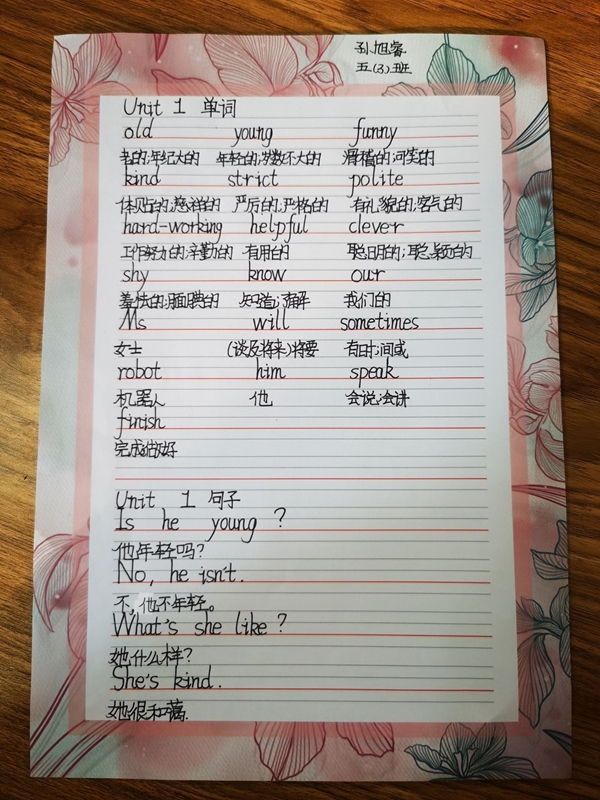 孙旭睿
五(3)班
Unit 1 单词
old young funny
老的;年纪大的 年轻的;岁数不大的 滑稽的;可笑的
kind strict polite
体贴的;慈祥的 严厉的;严格的 有礼貌的;客气的
hard-working helpful clever
工作努力的;辛勤的 有用的 聪明的;聪颖的
shy know our
羞怯的;腼腆的 知道;了解 我们的
Ms will sometimes
女士 (谈及将来)将要 有时;间或
robot him speak
机器人 他 会说;会讲
finish
完成;做好
Unit 1 句子
Is he young ?
他年轻吗?
No, he isn't.
不,他不年轻。
What's she like ?
她什么样?
She's kind.
她很和蔼.